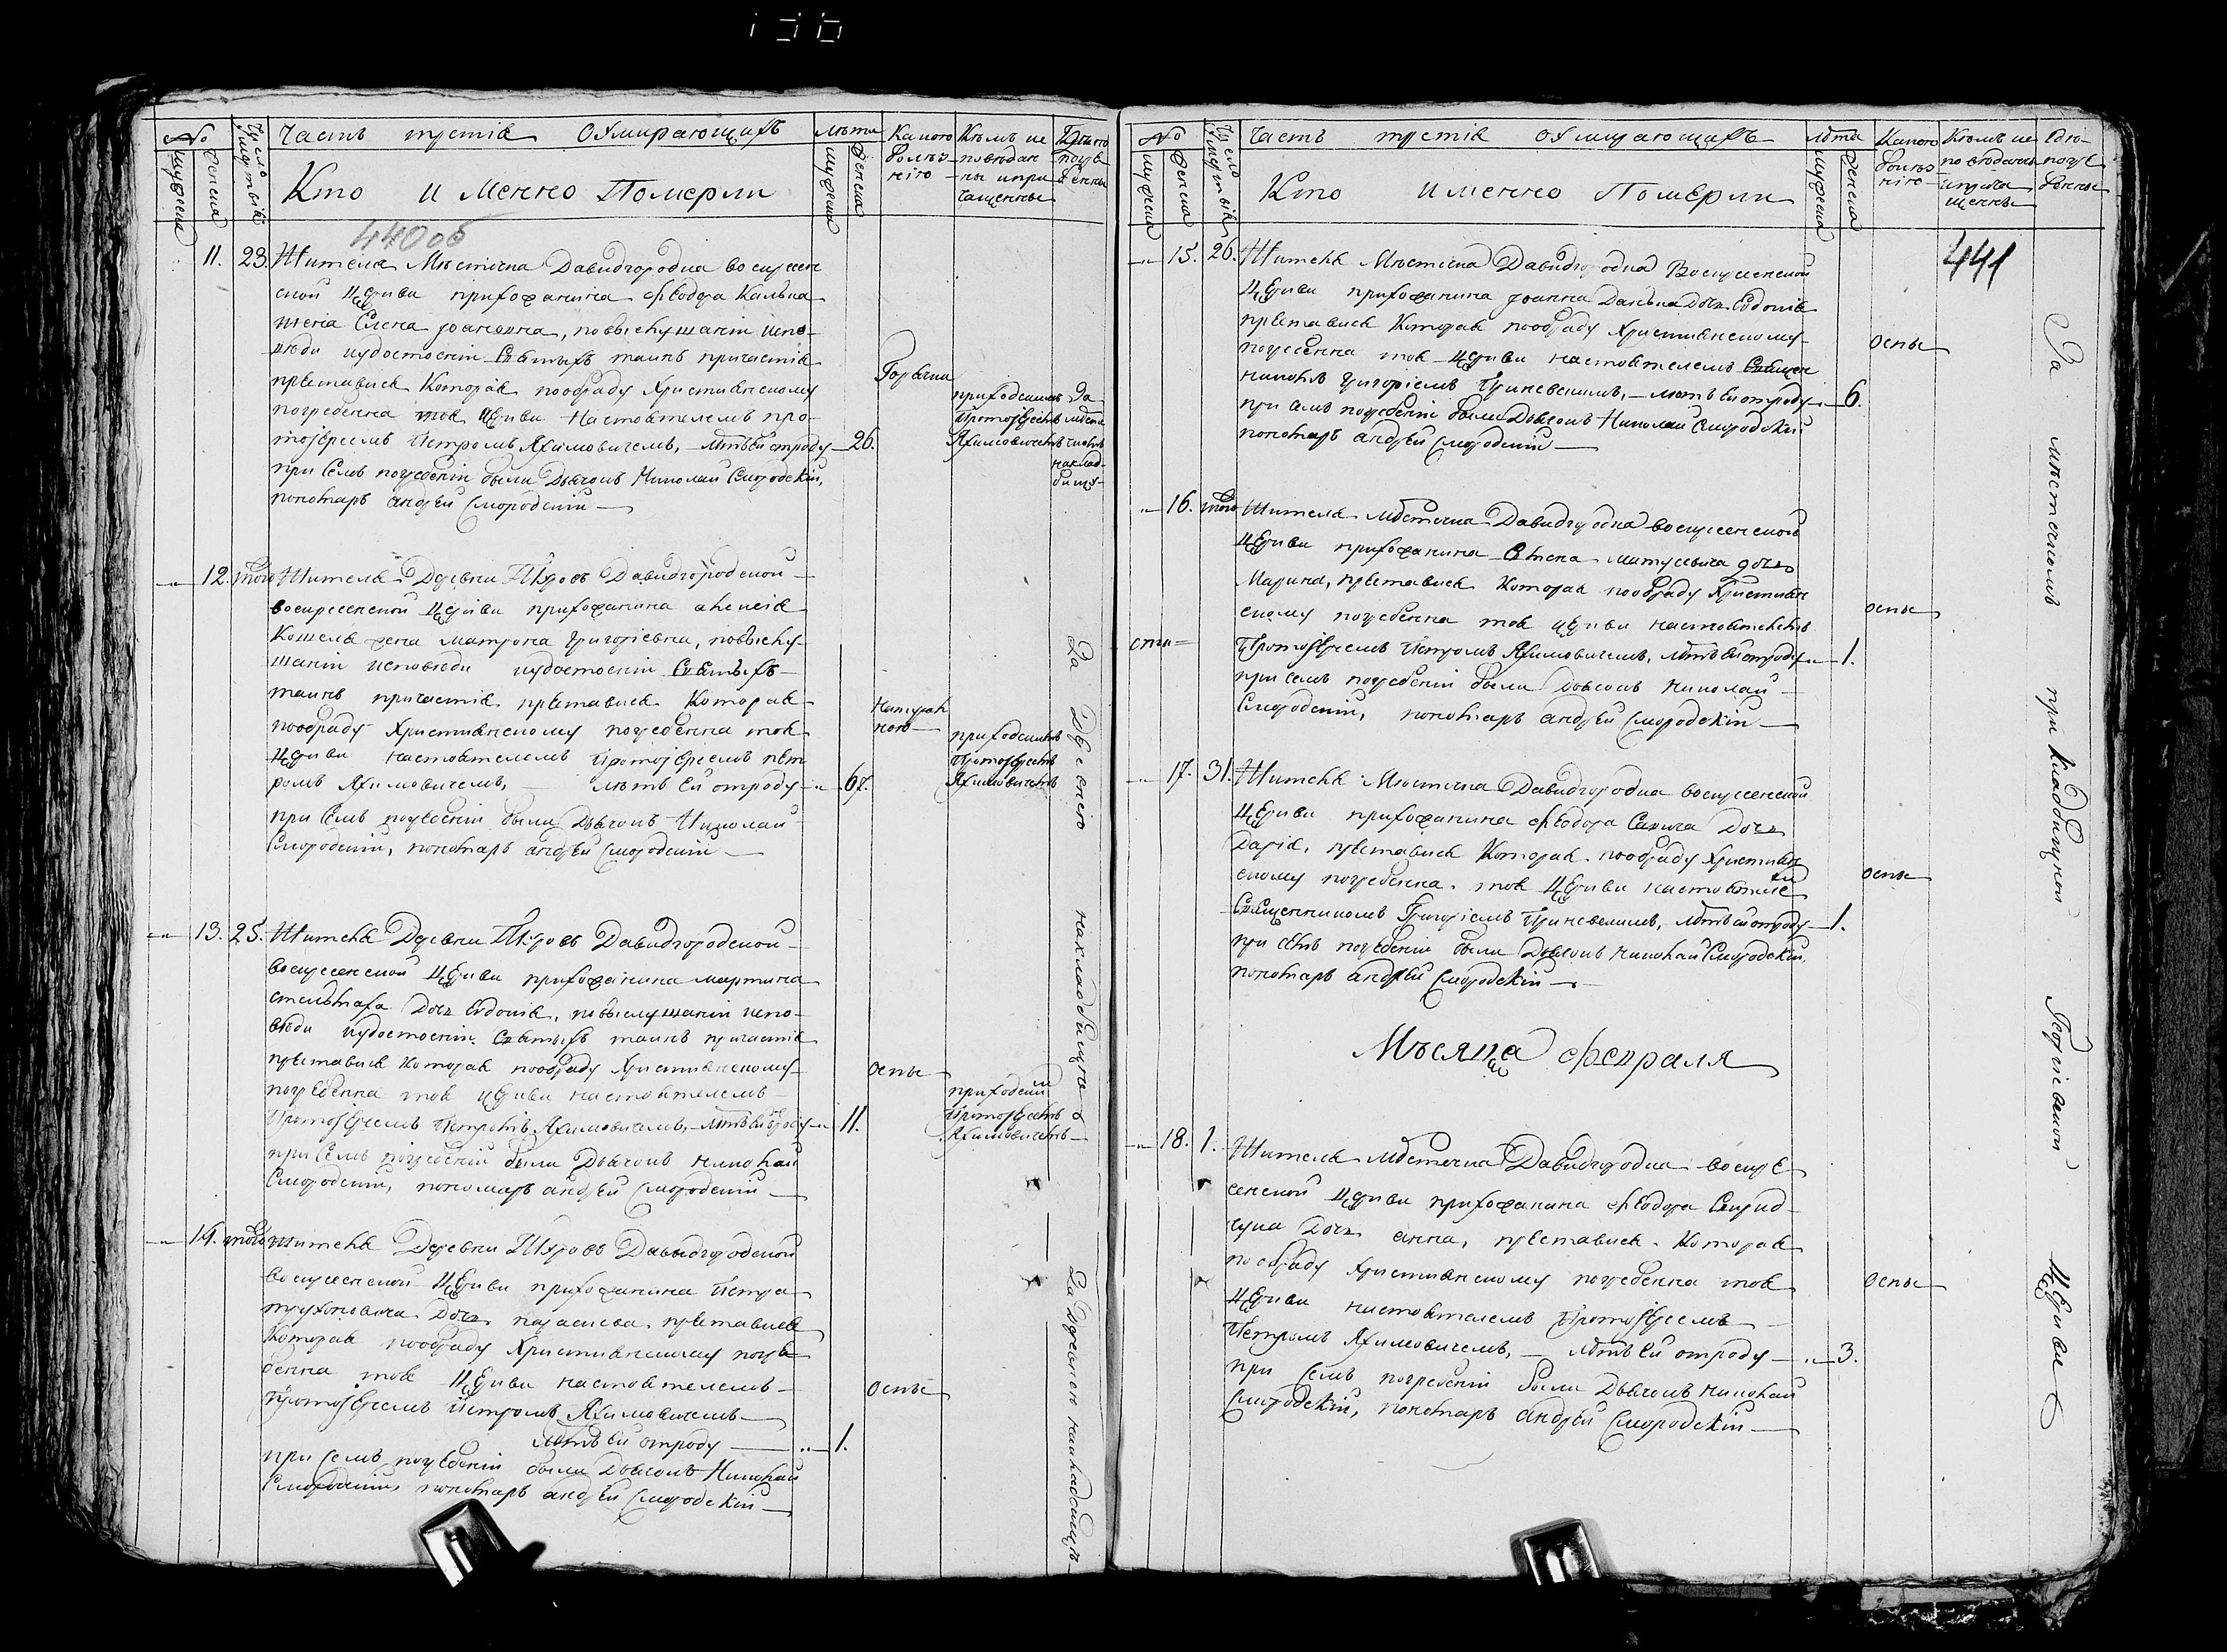 Часть третія Оумирающихъ
Кто имено Померли
440об
11. 23. Жителя Мѣстечка Давидгородка воскресен
ской Церкви прихожанина Феодора
жена Елена Іоановна, по выслушаніи испо-
вѣди и удостоеніи Святыхъ таинъ причастія
преставися Которая по обряду Християнскому
погребенна тоя Церкви Настоятелемъ про-
тоіереемъ Петромъ Яхимовичемъ, лѣтъ ей отроду 26.
при Семъ погребеніи были Дьячокъ Николай Смородскій,
пономаръ андрей Смородскій
Горячки
приходскимъ
Протоіереемъ
Яхимовичемъ
12. того Жителя Деревни Давидгородской
воскресенской Церкви прихожанина алексія
Кошеля жена Матрона Григоріевна, по выслу-
шаніи исповѣди и удостоеніи Святыхъ
таинъ причастія преставися Которая
по обряду Християнскому погребенна тоя
Церкви настоятелемъ Протоіереемъ пет
ромъ Яхимовичемъ, лѣтъ ей отроду 67.
при Семъ погребеніи были Дьячокъ Николай
Смородскій, пономаръ андрей Смородскій
Натураль
ною
приходскимъ
Протоіереемъ
Яхимовичемъ
13. 25. Жителя Деревни Давидгородской
воскресенской Церкви прихожанина мартина
стельмаха Дочь Евдокія, по выслушаніи испо-
вѣди и удостоеніи Святыхъ таинъ причастія
преставися Которая по обряду Християнскому
погребенна тоя Церкви настоятелемъ
Протоіереемъ Петромъ Яхимовичемъ, лѣтъ ей отроду 11.
при Семъ погребеніи были Дьячокъ николай
Смородскій, пономаръ андрей Смородскій
оспы
приходским
Протоіереемъ
Яхимовичемъ
14. того жителя Деревни Давидгородской
воскресенской Церкви прихожанина Петра
трухоновича Дочь параскева преставися
Которая по обряду Християнскому погре
бенна тоя Церкви настоятелемъ
Протоіереемъ Петромъ Яхимовичемъ
лѣтъ ей отроду 1.
при Семъ погребеніи были Дьячокъ Николай
Смородскій, пономаръ андрей Смородскій
оспы
Часть третія оумирающихъ
Кто имено Померли
441
15. 26. Жителя Мѣстечка Давидгородка Воскресенской
Церкви прихожанина Іоанна Данька Дочь Евдокія
преставися Которая по обряду Християнскому
погребенна тоя Церкви настоятелемъ Священ
никомъ Григоріемъ Гриневецкимъ, лѣтъ ей отроду 6.
при семъ погребеніи были Дьячокъ Николай Смородскій
пономаръ андрей Смородскій
оспы
16. того Жителя мѣстечка Давидгородка воскресенской
Церкви прихожанина матусевича дочь
Марина, преставися Которая по обряду Християн
скому погребенна тоя церкви настоятелемъ
Протоіереемъ Петромъ Яхимовичемъ, лѣтъ ей отроду 1.
при семъ погребеніи были Дьячокъ николай
Смородскій, пономаръ андрей Смородскій
оспы
17. 31. Жителя Мѣстечка Давидгородка воскресенской
Церкви прихожанина Феодора Дочь
Дарія, преставися Которая по обряду Християн
скому погребенна тоя Церкви настоятелем
Священникомъ Григоріемъ Гриневецкимъ, лѣтъ ей отроду 1.
при семъ погребеніи были Дьячокъ николай Смородскій,
пономаръ андрей Смородскій
оспы
Мѣсяца февраля
18. 1. Жителя мѣстечка Давидгородка воскре
сенской Церкви прихожанина Феодора Свирид
чука Дочь анна, преставися Которая
по обряду Християнскому погребенна тоя
Церкви настоятелемъ Протоіереемъ
Петромъ Яхимовичемъ, лѣтъ ей отроду 3.
при Семъ погребеніи были Дьячокъ николай
Смородскій, пономаръ андрей Смородскій
оспы
За мѣстечкомъ при кладбищной Георгіевской Церкви